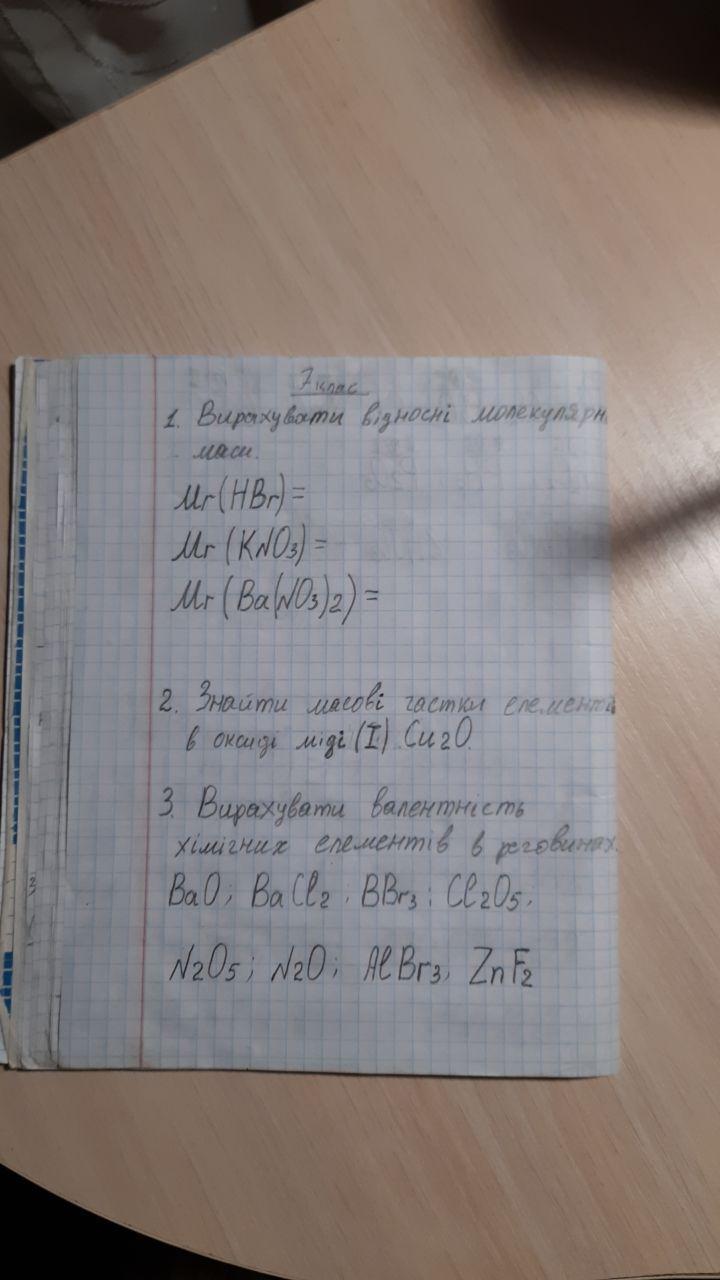 7 клас
1. Вирахувати відносні молекулярн
маси.
Mr(HBr)=
Mr(KNO3)=
Mr(Ba(NO3)2)=
2. Знайти масові частки елементів
в оксиді міді (I) Cu2O.
3. Вирахувати валентність
хімічних елементів в речовинах.
BaO; BaCl2; BBr3; Cl2O5;
N2O5; N2O; AlBr3, ZnF2